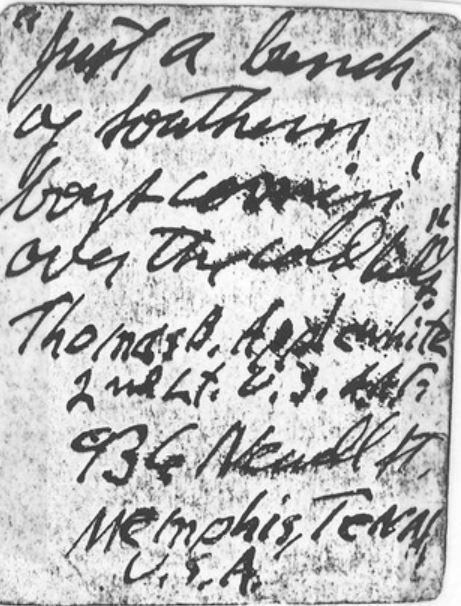 "Just a bunch
of southern
boys comin'
over the cold
Thomas B. Applewhite
2nd Lt. U.S.
936 St.
Memphis, Tenn
U.S.A.